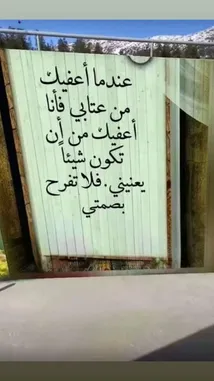 عندما أعفيك
من عتابي فأنا
أعفيك من أن
تكون شيئاً
يعنيني. فلا تفرح
بصمتي